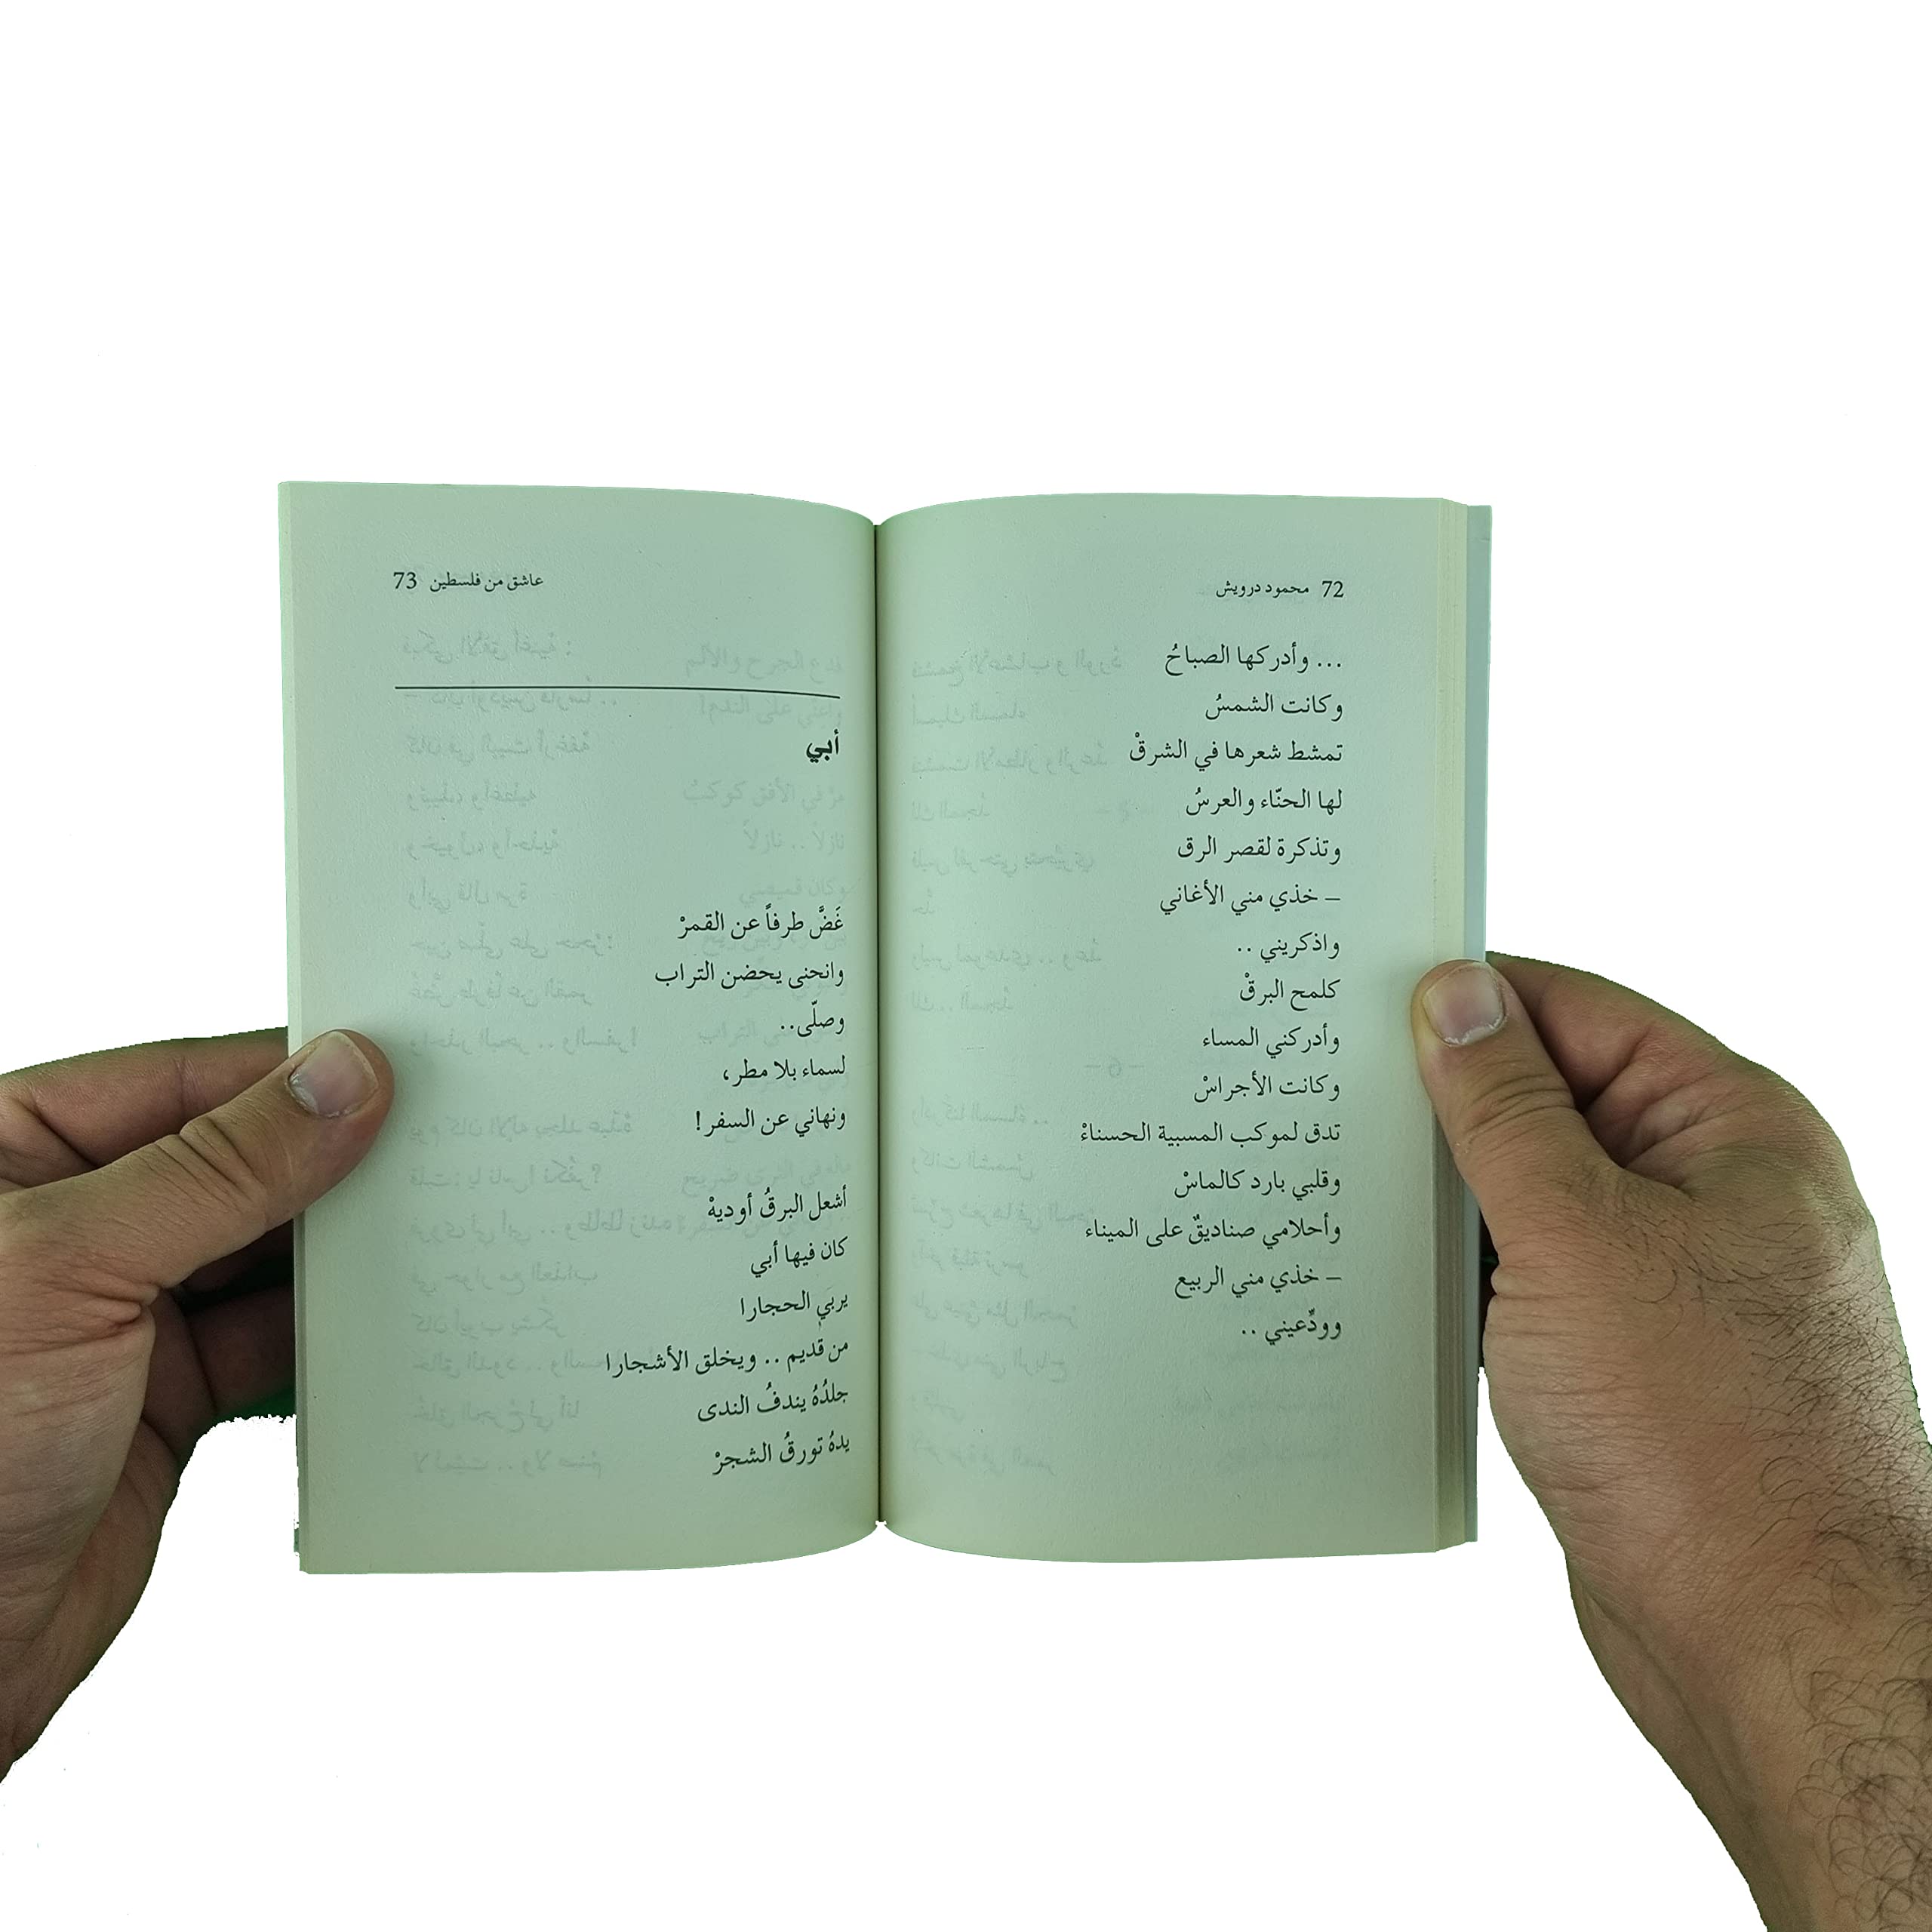 72 محمود درويش
... وأدركها الصباحُ
وكانت الشمسُ
تمشط شعرها في الشرقْ
لها الحنّاء والعرسُ
وتذكرة لقصر الرق
– خذي مني الأغاني
واذكريني ..
كلمح البرقْ
وأدركني المساء
وكانت الأجراسْ
تدق لموكب المسبية الحسناءْ
وقلبي بارد كالماسْ
وأحلامي صناديقٌ على الميناء
– خذي مني الربيع
وودِّعيني ..
عاشق من فلسطين 73
أبي
غَضَّ طرفاً عن القمرْ
وانحنى يحضن التراب
وصلّى..
لسماء بلا مطر،
ونهاني عن السفر!
أشعل البرقُ أوديهْ
كان فيها أبي
يربي الحجارا
من قديم .. ويخلق الأشجارا
جلدُهُ يندفُ الندى
يدهُ تورقُ الشجرْ